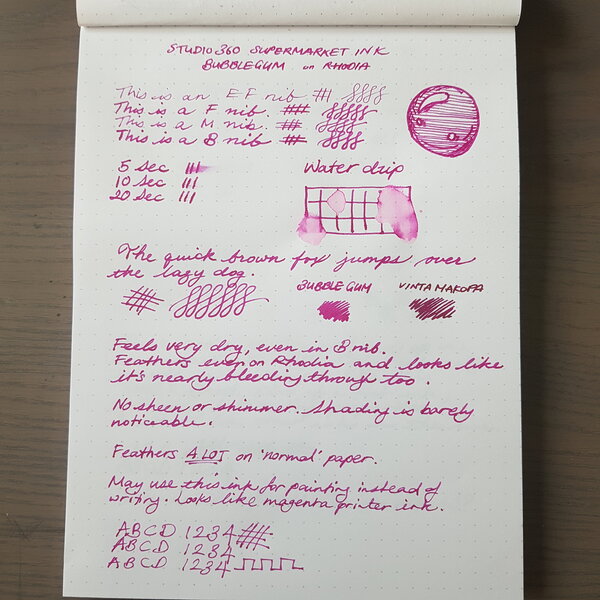 STUDIO 360 SUPERMARKET INK
BUBBLEGUM on RHODIA
This is an EF nib
This is a F nib.
This is a M nib.
This is a B nib
5 Sec
10 Sec
20 Sec
Water drip
The quick brown fox jumps over
the lazy dog.
BUBBLE GUM
VINTA MAKOPA
Feels very dry, even in B nib.
Feathers even on Rhodia and looks like
it's nearly bleeding through too.
No sheen or shimmer. Shading is barely
noticeable.
Feathers A LOT on 'normal' paper.
May use this ink for painting instead of
writing. Looks like magenta printer ink.
ABCD 1234
ABCD 1234
ABCD 1234